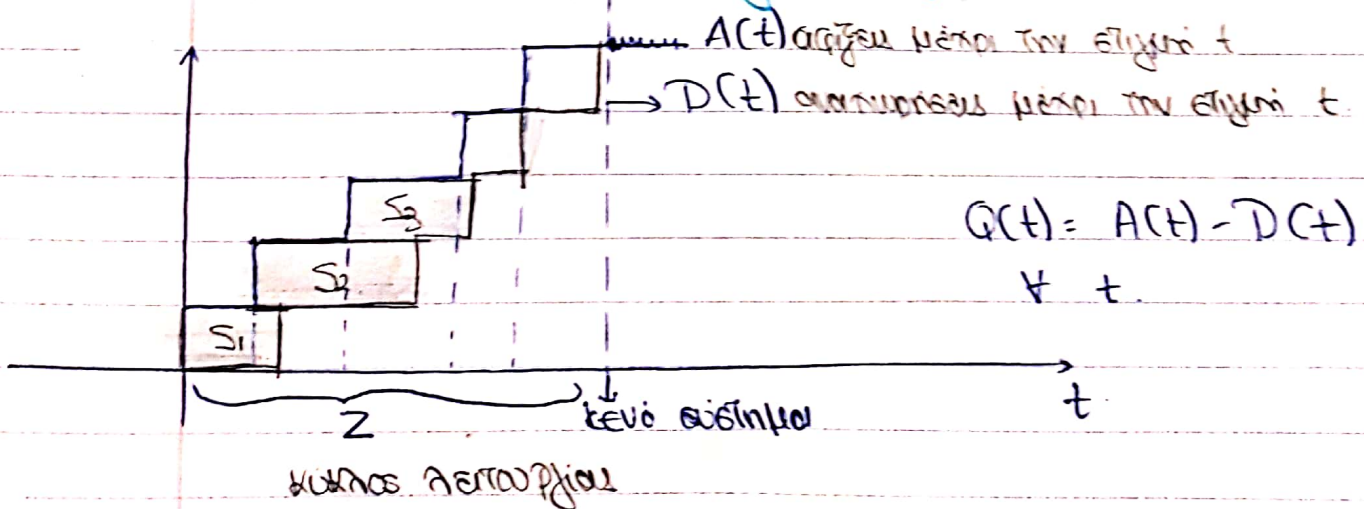 A(t) αφίξεις μέχρι την στιγμή t
D(t) αναχωρήσεις μέχρι την στιγμή t.
S3
Q(t) = A(t) - D(t)
S2
∀ t.
S1
t.
Z
κενό σύστημα
κύκλος λειτουργίας